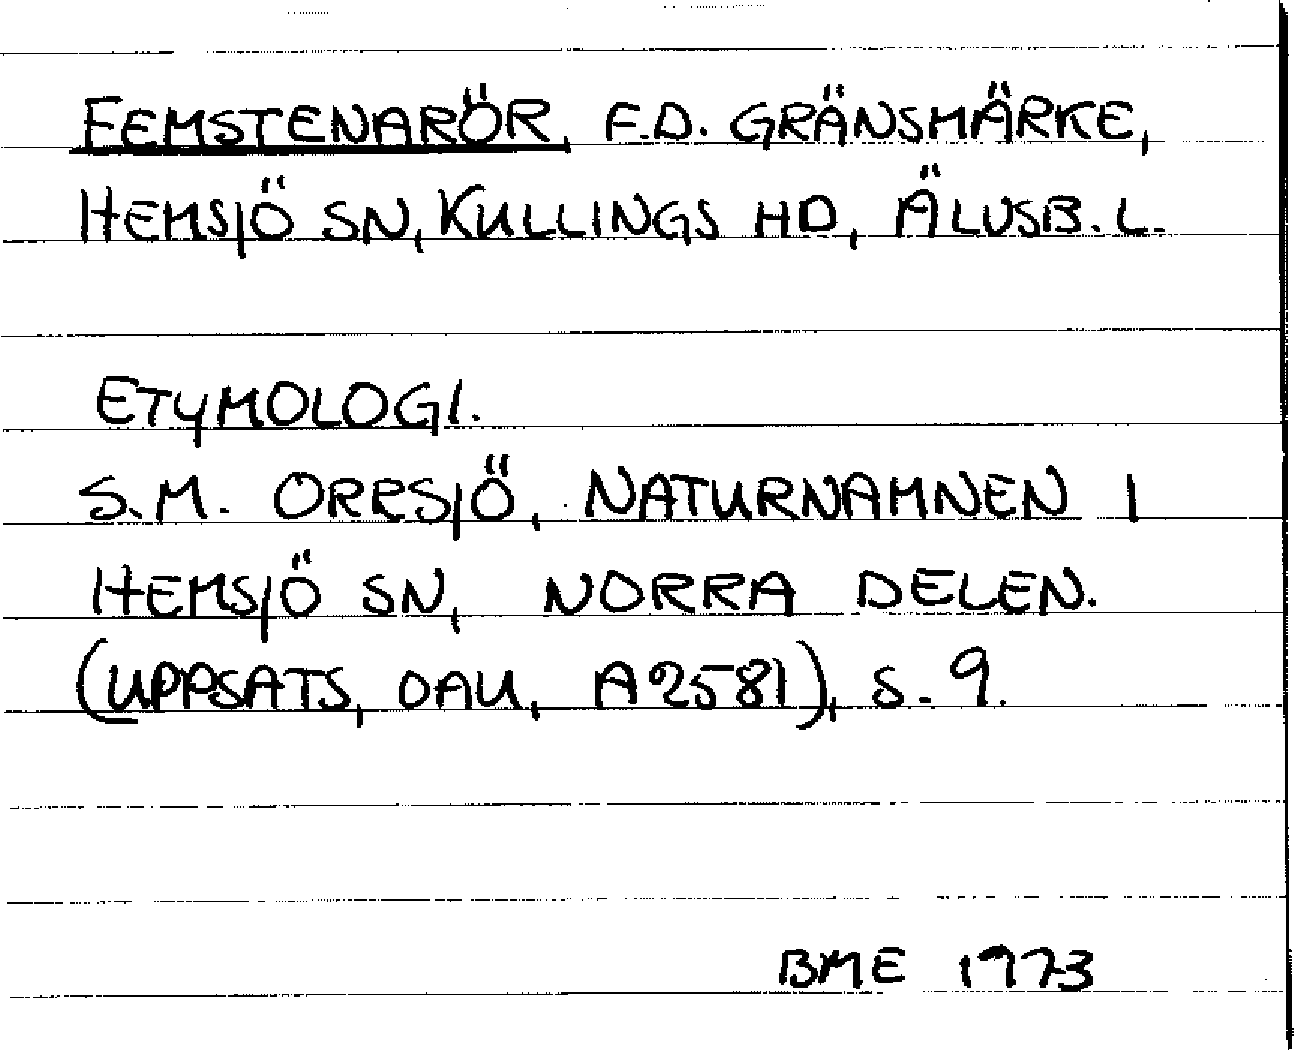 FEMSTENARÖR, F.D. GRÄNSMÄRKE,
HEMSJÖ SN, KULLINGS HD, ÄLVSB. L.
ETYMOLOGI.
S.M. ORRSJÖ, NATURNAMNEN I
HEMSJÖ SN, NORRA DELEN.
(UPPSATS, OAU, A2581), S. 9.
BME 1973